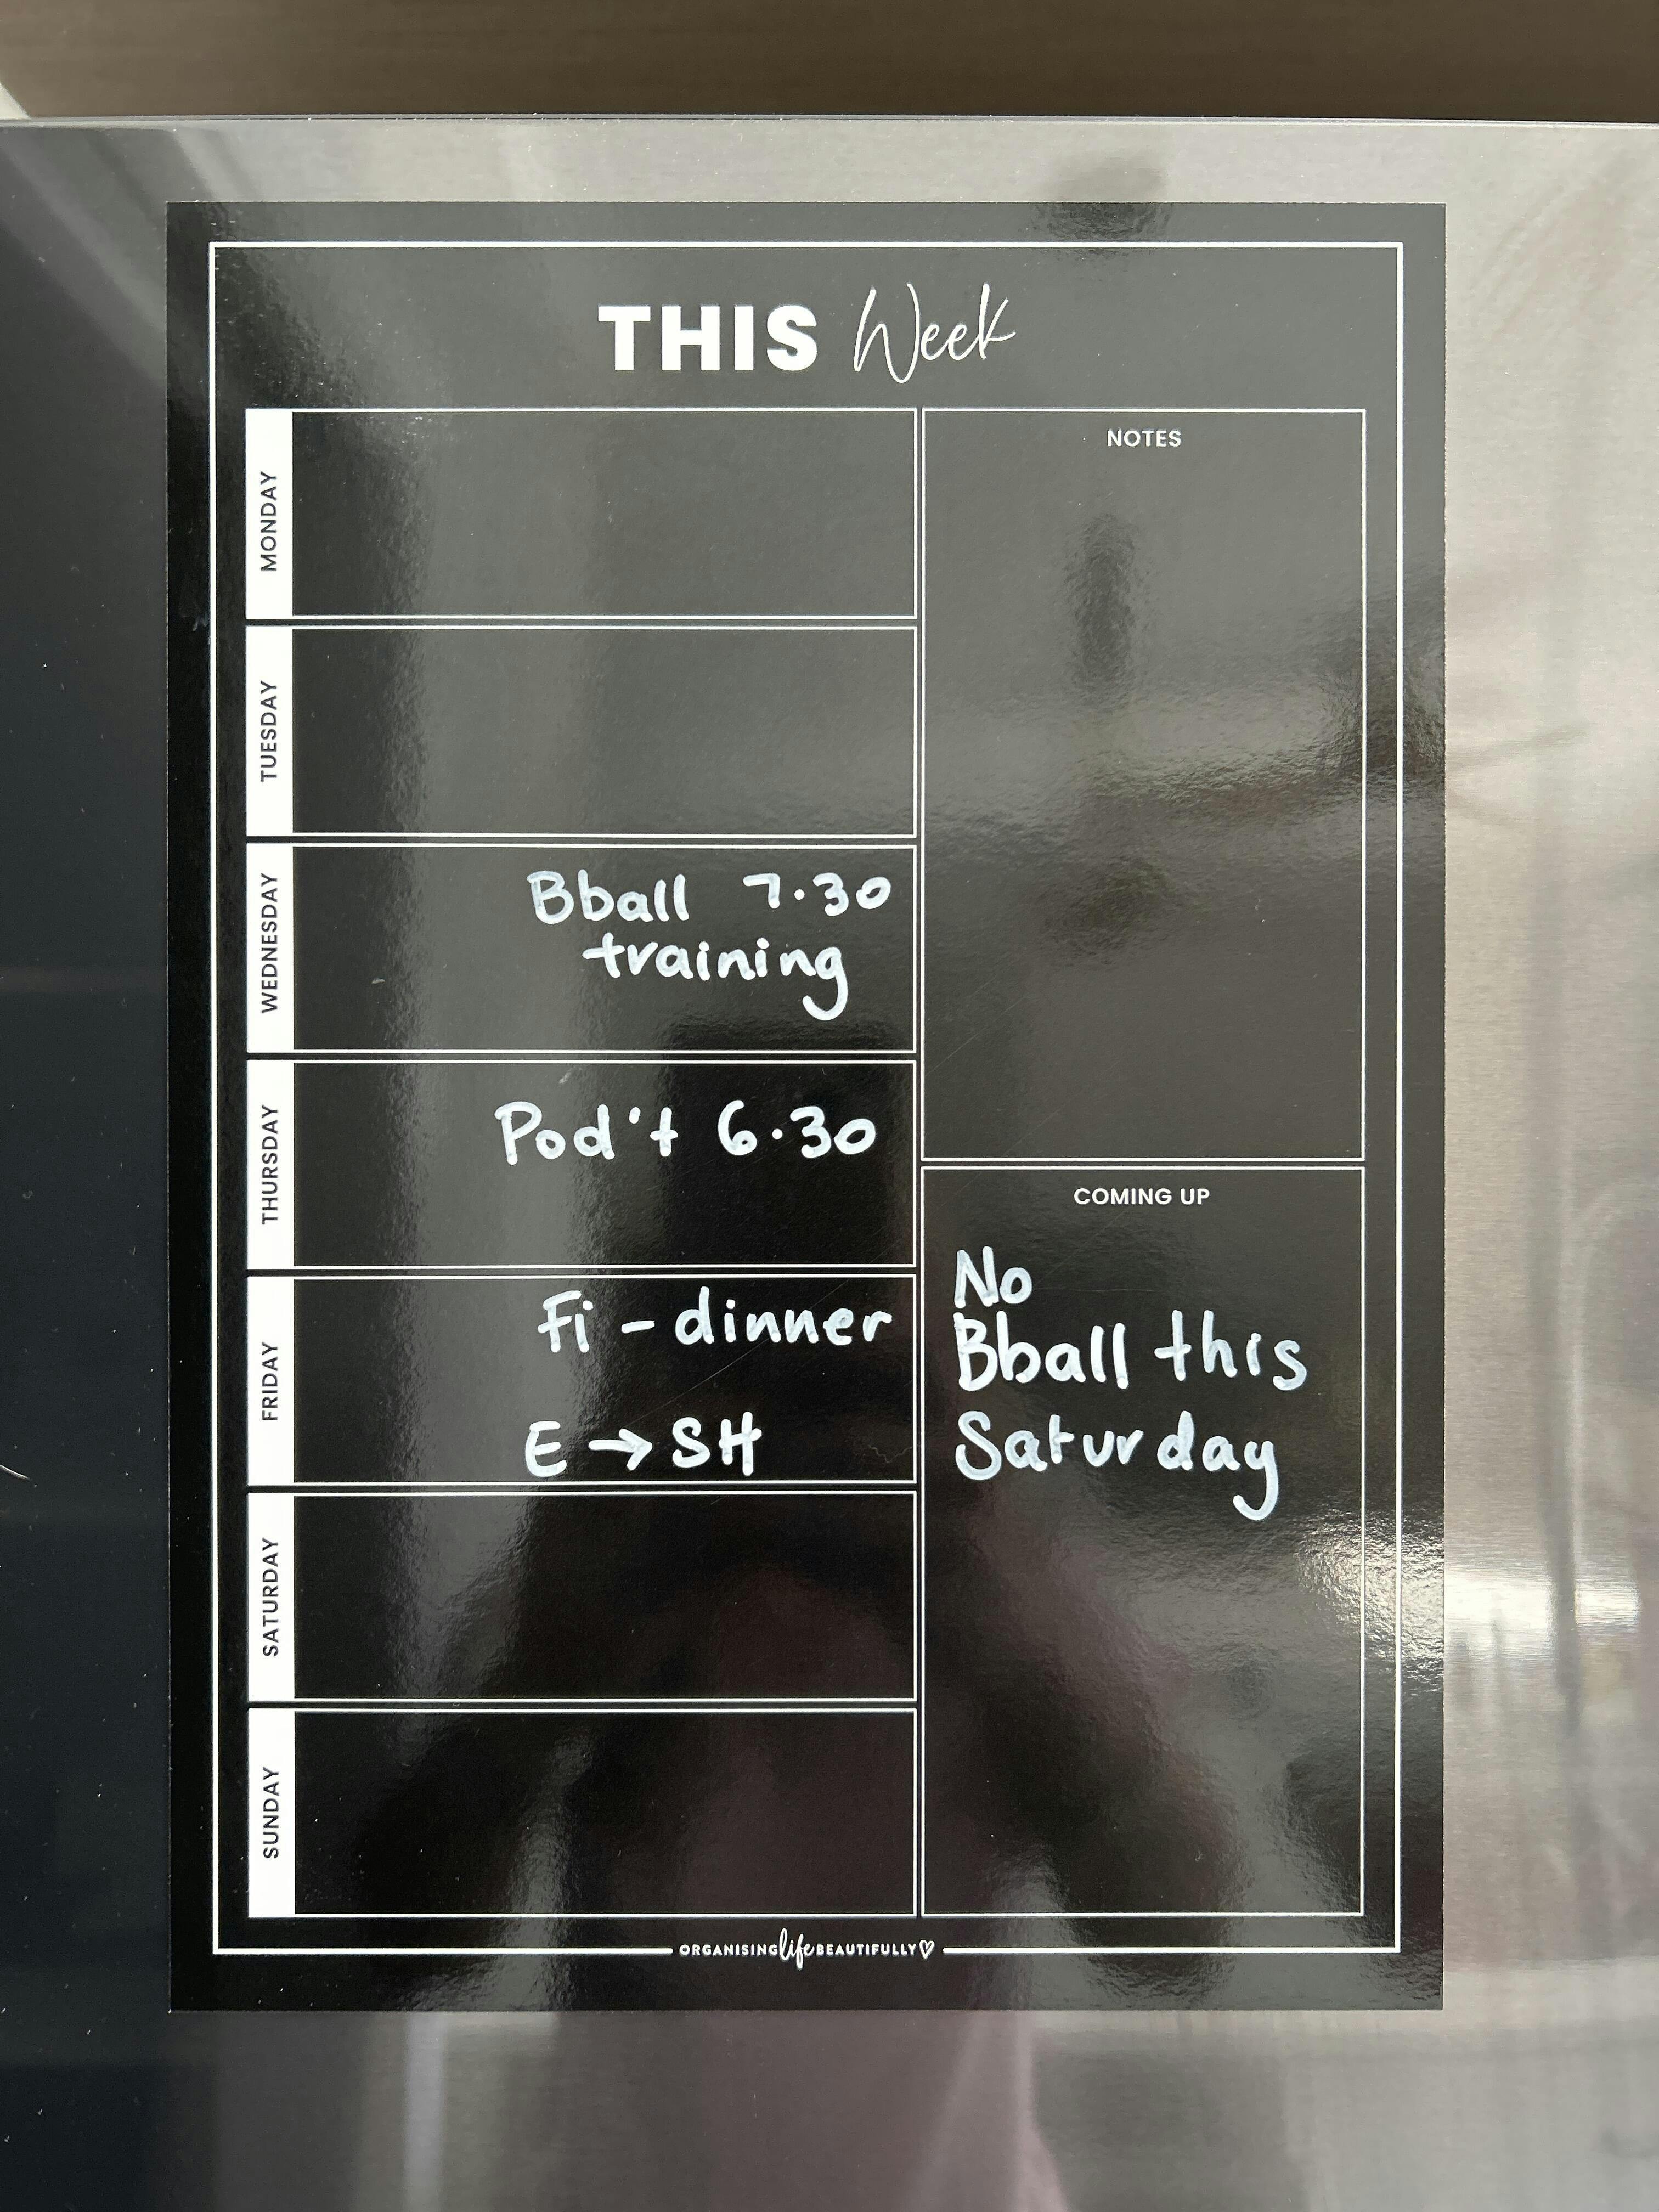 THIS Week
MONDAY
TUESDAY
WEDNESDAY
Bball 7.30
training
THURSDAY
Pod't 6.30
FRIDAY
Fi - dinner
E → SH
SATURDAY
SUNDAY
NOTES
COMING UP
No
Bball this
Saturday
ORGANISING life BEAUTIFULLY